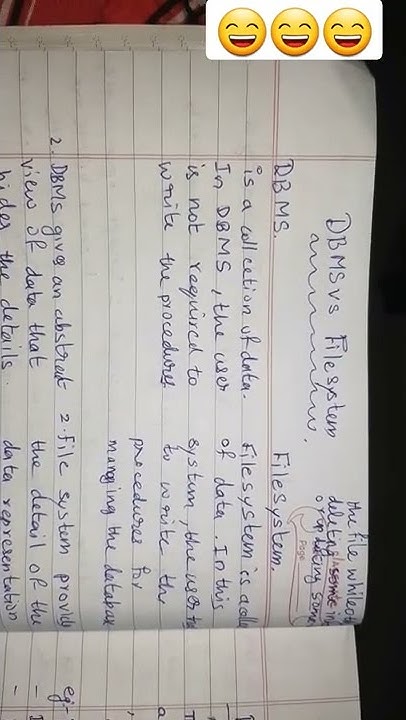 the file whileot
deleting
or updating some
Page
DBMS vs Filesystem
DBMS. Filesystem.
is a collcetion of data. Filesystem is a colle
In DBMS, the user of data. In this
is not required to system, the user
write the procedures to write the
procedures for
manging the database
2. DBMS give an abstract 2. file system provid
view of data that the detail of the
hides the details. data representation
eg-